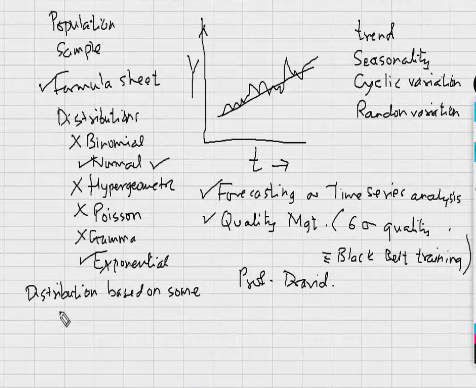 Population
Sample
✓ Formula sheet
Distributions
X Binomial
✓ Normal ✓
X Hypergeometr
X Poisson
X Gamma
✓ Exponential
Distribution based on some
Y
t →
trend
Seasonality
Cyclic variation
Randon variation
✓ Forecasting or Time series analysis
✓ Quality Mgt. (6σ quality.
Black Belt training)
Prof. David.